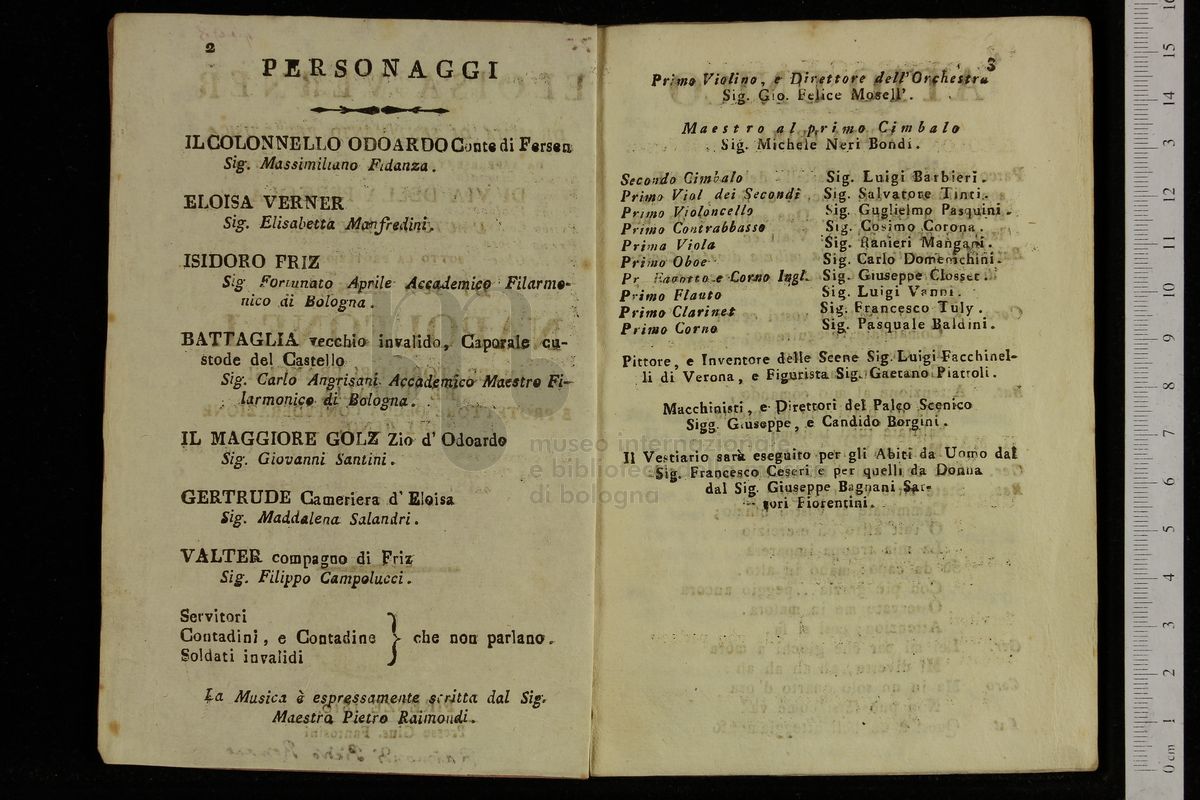 2
PERSONAGGI
IL COLONNELLO ODOARDO Conte di Fersen
Sig. Massimiliano Fidanza.
ELOISA VERNER
Sig. Elisabetta Manfredini.
ISIDORO FRIZ
Sig Fortunato Aprile Accademico Filarmo-
nico di Bologna.
BATTAGLIA vecchio invalido, Caporale cu-
stode del Castello
Sig. Carlo Angrisani Accademico Maestro Fi-
larmonico di Bologna.
IL MAGGIORE GOLZ Zio d' Odoardo
Sig. Giovanni Santini.
GERTRUDE Cameriera d' Eloisa
Sig. Maddalena Salandri.
VALTER compagno di Friz
Sig. Filippo Campolucci.
Servitori
Contadini, e Contadine } che non parlano.
Soldati invalidi
La Musica è espressamente scritta dal Sig.
Maestro Pietro Raimondi.
3
Primo Violino, e Direttore dell' Orchestra
Sig. Gio. Felice Mosell'.
Maestro al primo Cimbalo
Sig. Michele Neri Bondi.
Secondo Cimbalo Sig. Luigi Barbieri.
Primo Viol dei Secondi Sig. Salvatore Tinti.
Primo Violoncello Sig. Guglielmo Pasquini.
Primo Contrabbasso Sig. Cosimo Corona.
Prima Viola Sig. Ranieri Mangani.
Primo Oboe Sig. Carlo Domenichini.
Pr Fagotto e Corno Ingl. Sig. Giuseppe Closset.
Primo Flauto Sig. Luigi Vanni.
Primo Clarinet Sig. Francesco Tuly.
Primo Corno Sig. Pasquale Baldini.
Pittore, e Inventore delle Scene Sig. Luigi Facchinel-
li di Verona, e Figurista Sig. Gaetano Piattoli.
Macchinisti, e Direttori del Palco Scenico
Sigg. Giuseppe, e Candido Borgini.
Il Vestiario sarà eseguito per gli Abiti da Uomo dal
Sig. Francesco Ceseri e per quelli da Donna
dal Sig. Giuseppe Bagnani Sar-
tori Fiorentini.
museo internazionale
e biblioteca
di bologna